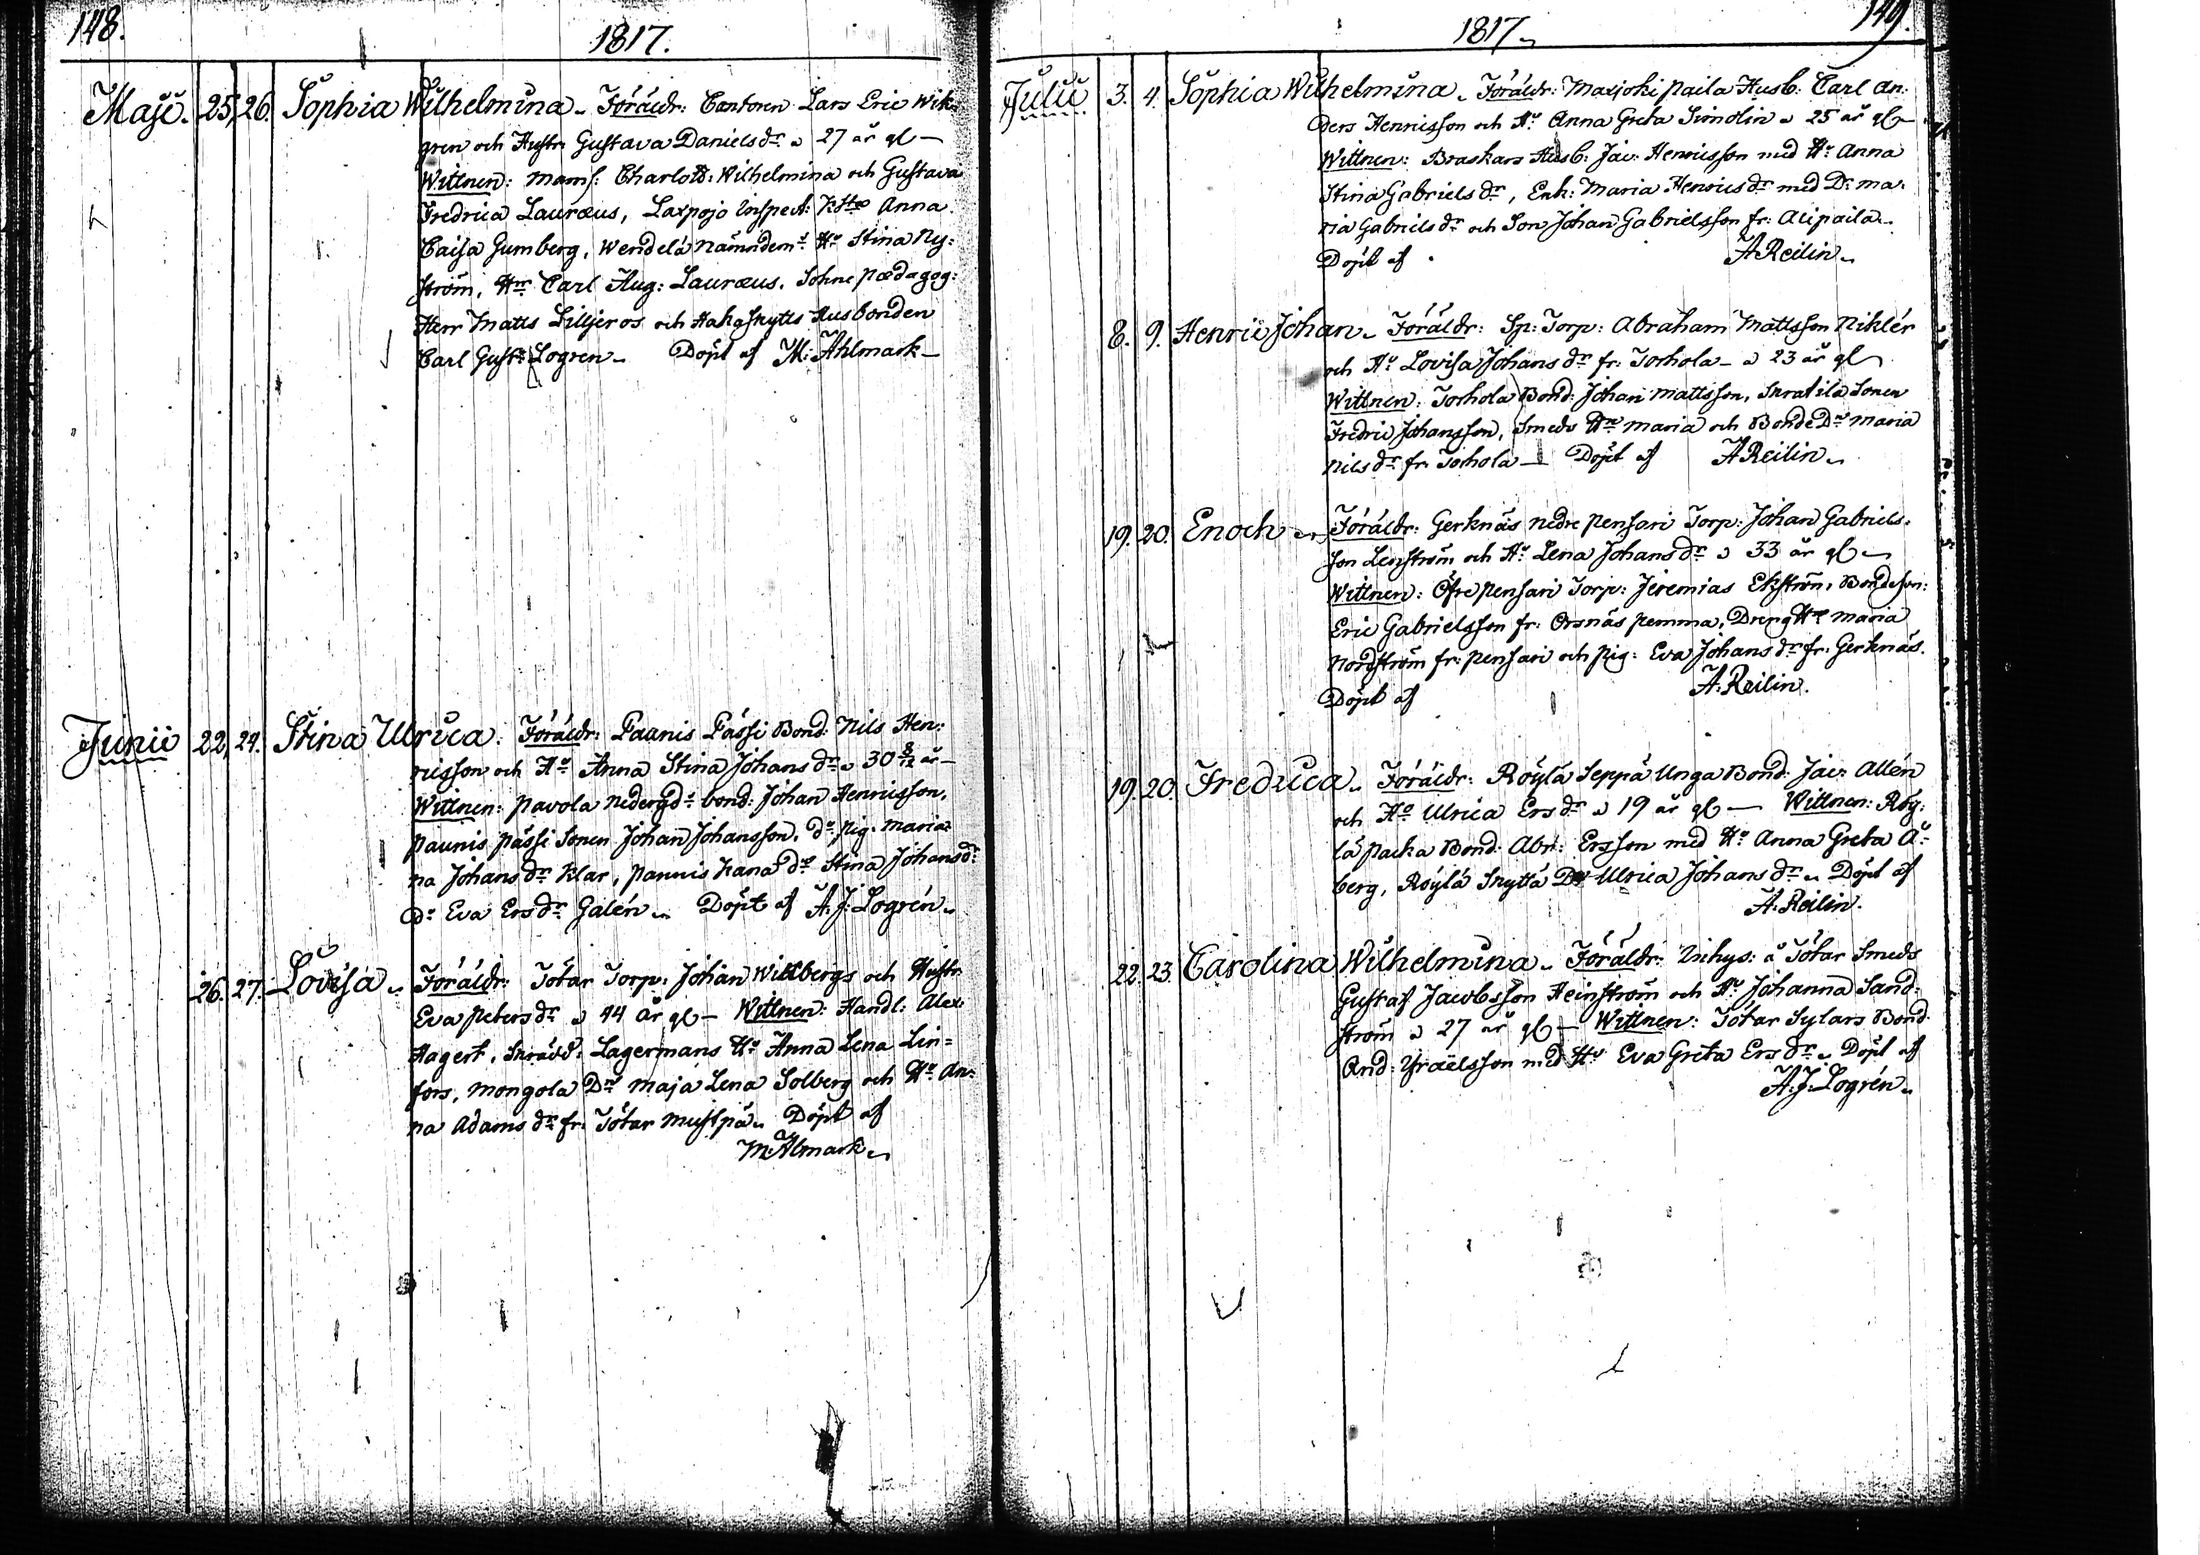 148.
1817.
Maji. 25. 26. Sophia Wilhelmina. Föräldr: Cantoren Lars Eric Wik-
gren och Hustr: Gustava Danielsdr a 27 år gl
Wittnen: Mams: Charlott: Wilhelmina och Gustava
Fredrica Lauræus, Laxpojo Inspect: Anna
Caisa Gumberg, Wendelä nämndem: Hu Stina Ny-
ström, Hrr Carl Aug: Lauræus, Sohne Pædagog:
Herr Matts Liljeros och Hakaskytts Husbonden
Carl Gust: Logren. Döpt af M: Ahlmark
Junii 22. 24. Stina Ulrica. Föräldr: Paunis Pässi Bond: Nils Hen-
ricsson och Hu Anna Stina Johans dr a 30 år
Wittnen: Pavola Nedergd: bond: Johan Henricsson,
Paunis Pässi Sonen Johan Johansson. do pig: Maria-
na Johans dr Klar, Paunis Dr Stina Johansdr
Dr Eva Ers dr Galén. Döpt af A. J. Logrén.
26. 27. Lovisa. Föräldr: Tötar Torp: Johan Willbergs och Hustr:
Eva Peters dr a 44 år gl Wittnen: Handl: Alex
Hagert, Skrädd: Lagermans Hu Anna Lena Lin-
fors, Mongola Dr Maja Lena Solberg och Hu An-
na Adams dr fr: Tötar Mustpä. Döpt af
M. Almark.
149.
1817.
Julii 3. 4. Sophia Wilhelmina. Föräldr: Marjoki Paila Husb: Carl An-
ders Henricsson och Hu Anna Greta Simolin a 25 år gl
Wittnen: Braskars Husb: Jac: Henricsson med Hu Anna
Stina Gabriels dr, Enk: Maria Henrics dr med Dr Ma-
ria Gabriels dr och Son Johan Gabrielsson fr: Alipaila.
Döpt af A Reilin.
8. 9. Henric Johan. Föräldr: Sp: Torp: Abraham Mattsson Niklér
och Hu Lovisa Johans dr fr: Torhola a 23 år gl
Wittnen: Torhola Bond: Johan Mattsson, Skratila Sonen
Fredric Johansson, Smeds Maria och Bonde Dr Maria
Nils dr fr Torhola Döpt af A Reilin.
19. 20. Enoch. Föräldr: Gerknäs Nedre Pensari Torp: Johan Gabriels-
son Lenström och Hu Lena Johans dr a 33 år gl
Wittnen: Öfre Pensari Torp: Jeremias Ekström, Bondeson:
Eric Gabrielsson fr: Orsnäs Pemma, Dreng Maria
Nordström fr: Pensari och Pig: Eva Johans dr fr: Gerknäs.
Döpt af A. Reilin.
19. 20. Fredrica. Föräldr: Röylä Seppä Unga Bond: Jac: Allén
och Hu Ulrica Ers dr a 19 år gl Wittnen: Röy-
lä Packa Bond: Abr: Ersson med Hu Anna Greta Å-
berg, Röylä Skyttä Dr Ulrica Johans dr. Döpt af
A. Reilin.
22. 23. Carolina Wilhelmina. Föräldr: Inhys: å Tötar Smeds
Gustaf Jacobsson Heinström och Hu Johanna Sand-
ström a 27 år gl Wittnen: Tötar Sylars Bond:
And: Israëlsson med Hu Eva Greta Ers dr. Döpt af
A. J. Logrén.